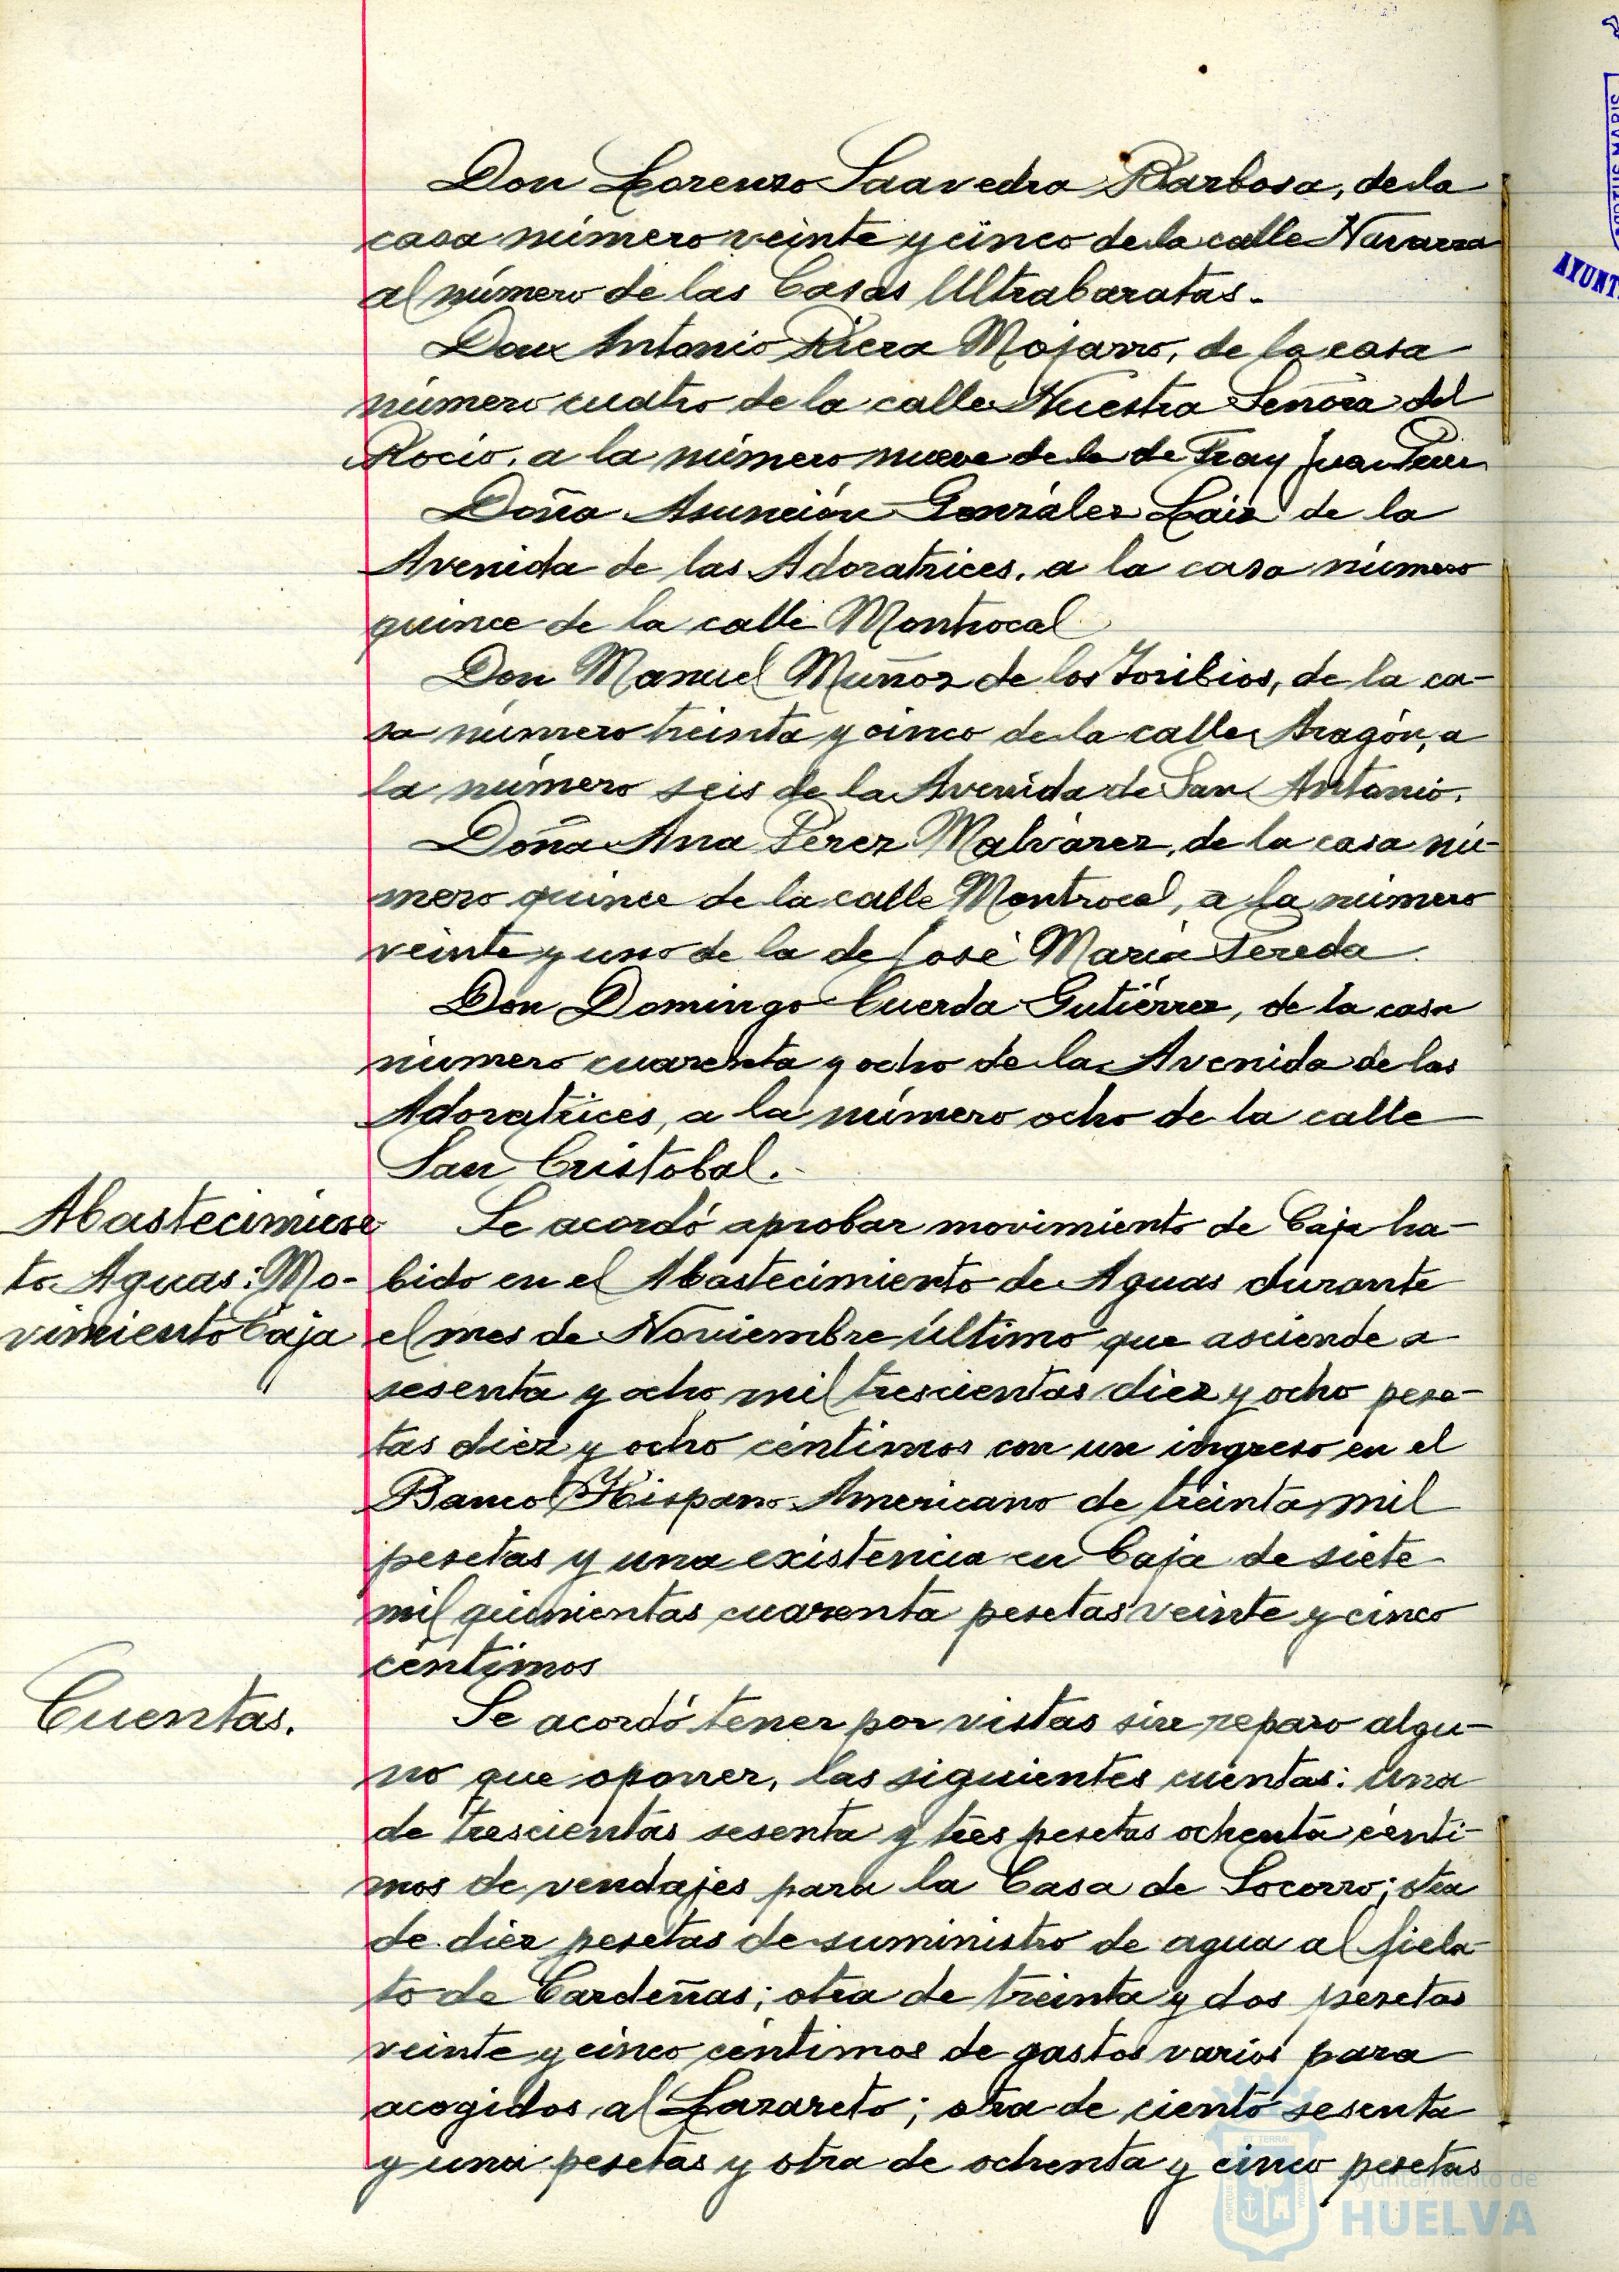 Don Lorenzo Saavedra Barbosa, de la
casa número veinte y cinco de la calle Navarra
al número de las Casas Ultrabaratas.
Don Antonio Riera Mojarro, de la casa
número cuatro de la calle Nuestra Señora del
Rocio, a la número nueve de la de Fray Juan Perez
Doña Asunción González Laiz de la
Avenida de las Adoratrices, a la casa número
quince de la calle Montrocal
Don Manuel Muñoz de los Toribios, de la ca-
sa número treinta y cinco de la calle Aragón, a
la número seis de la Avenida de San Antonio.
Doña Ana Pérez Malvárez, de la casa nú-
mero quince de la calle Montrocal, a la número
veinte y uno de la de José María Pereda.
Don Domingo Cuerda Gutiérrez, de la casa
número cuarenta y ocho de la Avenida de las
Adoratrices, a la número ocho de la calle
San Cristobal.
Abastecimien
to Aguas: Mo-
vimiento Caja
Se acordó aprobar movimiento de Caja ha-
bido en el Abastecimiento de Aguas durante
el mes de Noviembre último que asciende a
sesenta y ocho mil trescientas diez y ocho pese-
tas diez y ocho céntimos con un ingreso en el
Banco Hispano Americano de treinta mil
pesetas y una existencia en Caja de siete
mil quinientas cuarenta pesetas veinte y cinco
céntimos
Cuentas.
Se acordó tener por vistas sin reparo algu-
no que oponer, las siguientes cuentas: Una
de trescientas sesenta y tres pesetas ochenta cénti-
mos de vendajes para la Casa de Socorro; otra
de diez pesetas de suministro de agua al fiela-
to de Cardeñas; otra de treinta y dos pesetas
veinte y cinco céntimos de gastos varios para
acogidos al Lazareto; otra de ciento sesenta
y una pesetas y otra de ochenta y cinco pesetas
Ayuntamiento de
HUELVA